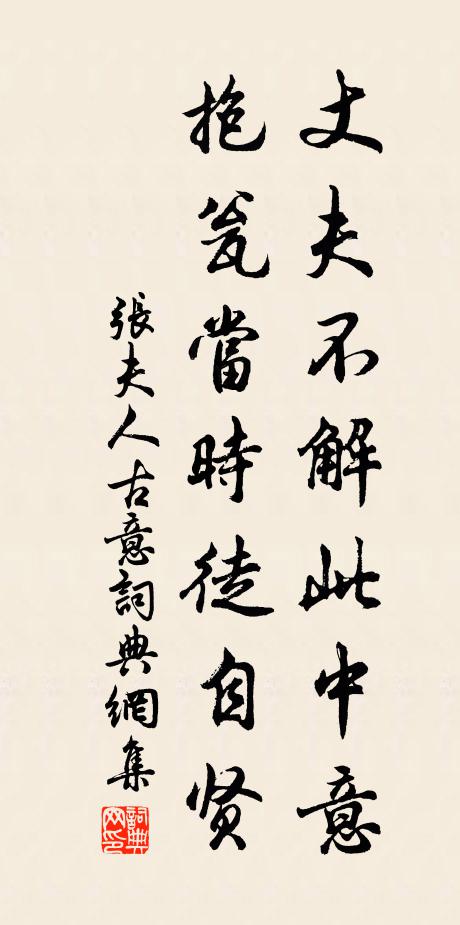 丈夫不解此中意
抱瓮當時徒自贤
張夫人古意詞典網集
詞典
网印